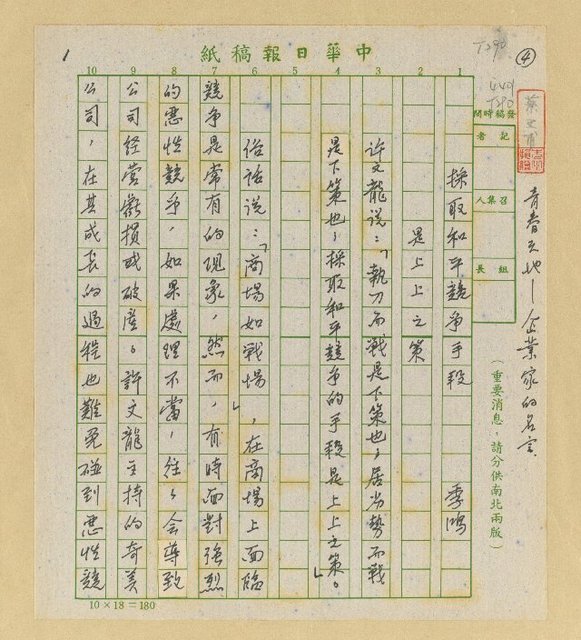 中華日報稿紙
④
T290
青春天地—企業家的名言
發稿時間
記者
召集人
組長
(重要消息,請分供南北兩版)
1 2 3 4 5 6 7 8 9 10
採取和平競争手段 季鴻
是上上之策
许文龍说:「執刀而戰是下策也,居劣勢而戰
是下策也,採取和平競争的手段是上上之策。」
俗话说:「商場如戰場」,在商場上面臨
競争是常有的现象,然而,有時面對強烈
的悪性競争,如果處理不當,往々会導致
公司经营虧損或破産。許文龍主持的奇美
公司,在其成長的過程也難免碰到悪性競
10×18=180
1